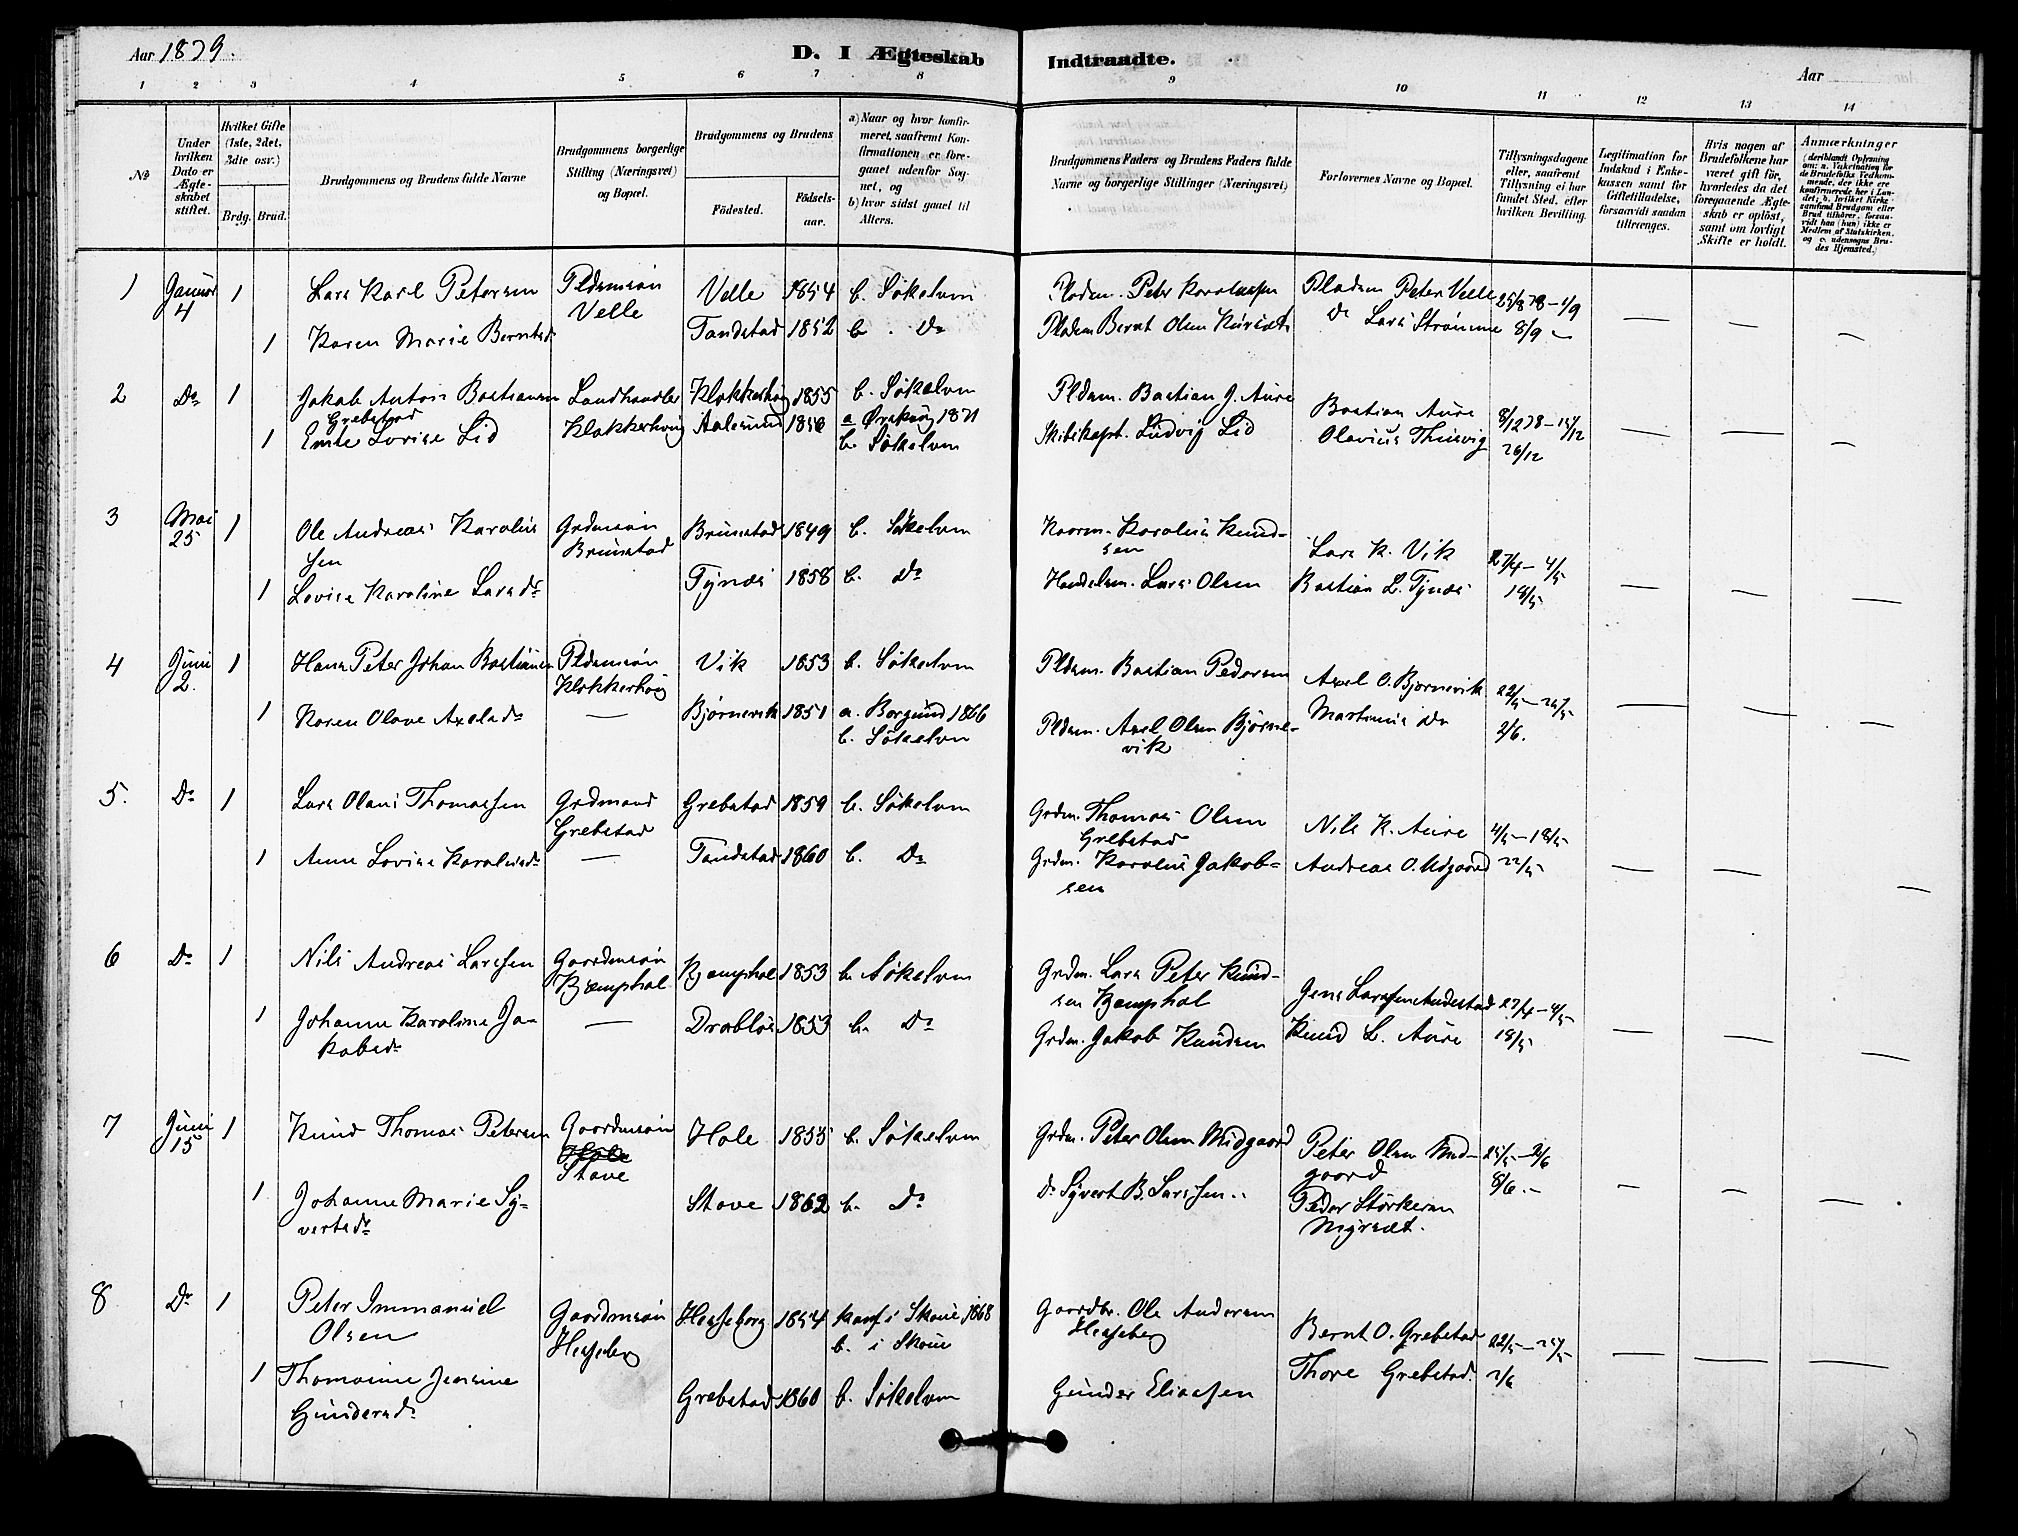 Aar 1879.
D. I Ægteskab Indtraadte.
Aar
1 2 3 4 5 6 7 8 9 10 11 12 13 14
No
Under hvilken Dato er Ægteskabet stiftet.
Hvilket Gifte (1ste, 2det, 3die osv.)
Brdg. Brud.
Brudgommens og Brudens fulde Navne
Brudgommens borgerlige Stilling (Næringsvei) og Bopæl.
Brudgommens og Brudens
Fødested.
Fødselsaar.
a) Naar og hvor konfirmeret, saafremt Konfirmationen er foregaaet udenfor Sognet, og
b) hvor sidst gaaet til Alters.
Brudgommens Faders og Brudens Faders fulde Navne og borgerlige Stillinger (Næringsvei)
Forlovernes Navne og Bopæl.
Tillysningsdagene eller, saafremt Tillysning ei har fundet Sted, efter hvilken Bevilling.
Legitimation for Indskud i Enkekassen samt for Giftetilladelse, forsaavidt saadan tiltrænges.
Hvis nogen af Brudefolkene har været gift før, hvorledes da det foregaaende Ægteskab er opløst, samt om lovligt Skifte er holdt.
Anmærkninger
1 Januar 4 1 Lars Karl Petersen Pldsmsøn Velle Velle 1854 b. Søkelven Pladsm. Peter Karolussen Pladsm Peter Velle 25/8 78 – 1/9
1 Karen Marie Berntsdr Tandstad 1852 b. Do Pladsm Bernt Olsen Do Lars Strømme 8/9 –
2 Do 1 Jakob Anton Bastiansen Grebstad Landhandler Klokkerhoug Klokkerhoug 1855 b. Søkelven Pldsm. Bastian J. Aure Bastian Aure 8/12 78 – 15/12
1 Emte Lovise Lid Aalesund 1856 a Ørskoug 1871 b. Søkelven Skibskapt. Ludvig Lid Olavius 26/12
3 Mai 25 1 Ole Andreas Karolussen Grdmsøn Brunstad Brunstad 1849 b. Søkelven Karolus Knudsen Lars K. Vik 27/4 – 4/5
1 Lovise Karoline Larsdr Tynes 1858 b. Do Handelsm. Lars Olsen Bastian L. Tynes 18/5
4 Juni 2. 1 Hans Peter Johan Bastiansen Pldsmsøn Klokkerhoug Vik 1853 b. Søkelven Pldsm. Bastian Pedersen Axel O. Bjørnevik 22/5 – 25/5
1 Karen Olave Axelsdr — Bjørnevik 1851 a. Borgund 1866 b. Søkelven Pldsm. Axel Olsen Bjørnevik Martinus Do 2/6.
5. Do 1 Lars Olaus Thomassen Grdmand Grebstad Grebstad 1859 b. Søkelven Grdm. Thomas Olsen Grebstad Nils K. Aure 4/5 – 18/5
1 Anne Lovise Karolusdr — Tandstad 1860 b. Do Grdm. Karolus Jakobsen Andreas O. Midgaard 22/5
6 Do 1 Nils Andreas Larssen Gaardmsøn Kjæmphol Kjæmphol 1853 b. Søkelven Grdm. Lars Peter Knudsen Kjæmphol Jens Larssen Andestad 27/4 – 4/5
1 Johanne Karoline Jakobsdr — Drabløs 1853 b. Do Grdm. Jakob Knudsen Knud L. Aure 18/5
7 Juni 15 1 Knud Thomas Petersen Gaardmsøn Stave Hole 1855 b. Søkelven Grdm. Peter Olsen Midgaard Peter Olsen Midgaard 25/5 – 2/6
1 Johanne Marie Syvertsdr Stave 1862 b. Do Do Syvert B. Larssen Peder Størkersen Myrsæt. 8/6. –
8 Do 1 Peter Immanuel Olsen Gaardmsøn Hesseberg Hesseberg 1854 Konf i Skoue 1868 b. i Skoue Gaardbr. Ole Andersen Hesseberg Bernt O. Grebstad 22/5 – 25/5
1 Thomasine Jensine Gundersdr Grebstad 1860 b. Søkelven Gunder Eliassen Thore Grebstad. 2/6